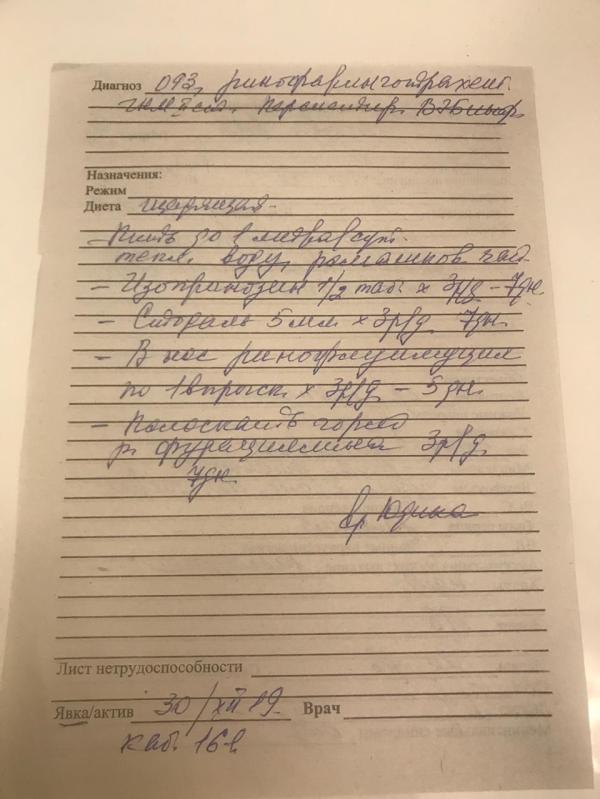 Диагноз ОРЗ, ринофаринготрахеит.
Персистир. ВЭБ инф.
Назначения:
Режим
Диета щадящая.
- Пить до 1 литра в сут.
тепл. воду, ромашков чай
- Изопринозин 1/2 таб. х 3 р/д - 7 дн.
-Ситодаль 5 мл х 3 р/д 7 дн.
- В нос ринофлуимуцил
по 1 впрыск. х 3 р/д - 5 дн.
- Полоскать горло
р. фурациллином 3 р/д.
7 дн.
вр Юдина
Лист нетрудоспособности
Явка/актив 30/XII 19 Врач
каб. 16-1.